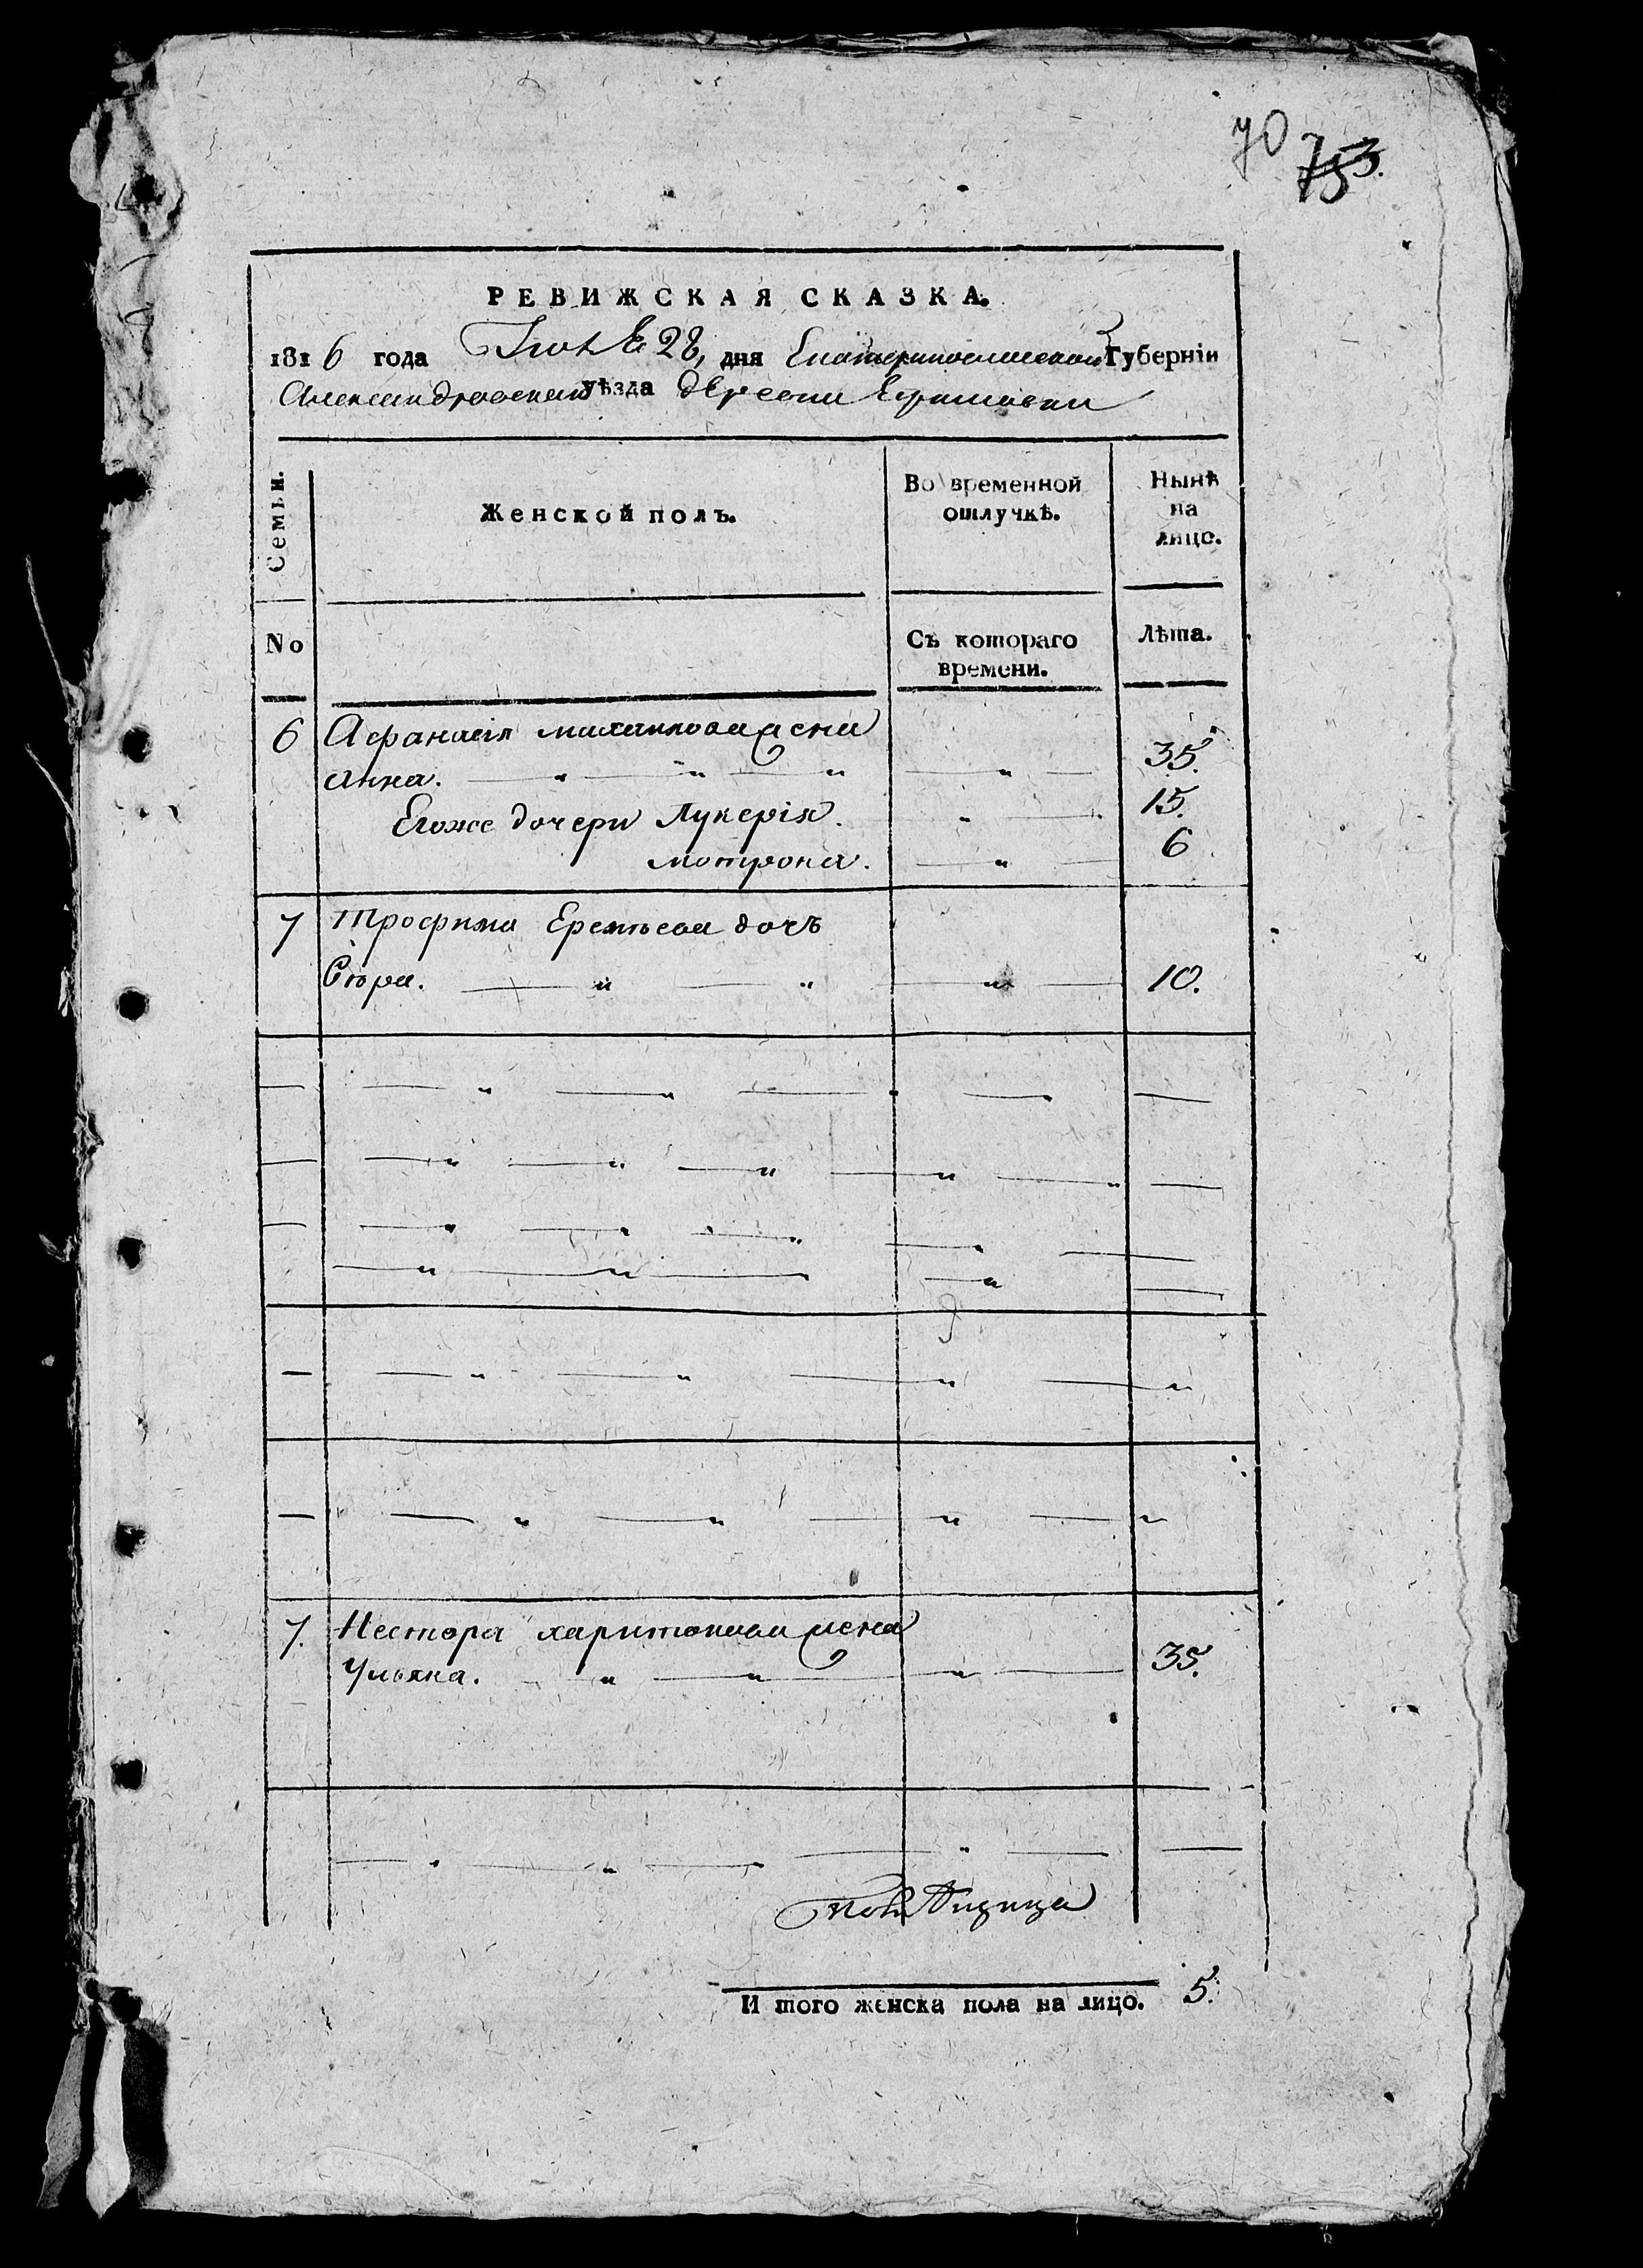 70
753.
РЕВИЖСКАЯ СКАЗКА.
1816 года 28, дня Екатеринославской Губерніи
Александровскаго уѣзда деревни
Семьи.
Женской полъ.
Во временной отлучкѣ.
Нынѣ на лицо.
No
Съ котораго времени.
Лѣта.
6 Афанасія Михайлова жена
Анна. 35.
Егоже дочери Лукерія. 15.
Мотрона. 6
7 Трофима Еремѣева дочь
10.
7. Нестора Харитонова жена
Ульяна. 35.
И того женска пола на лицо. 5.